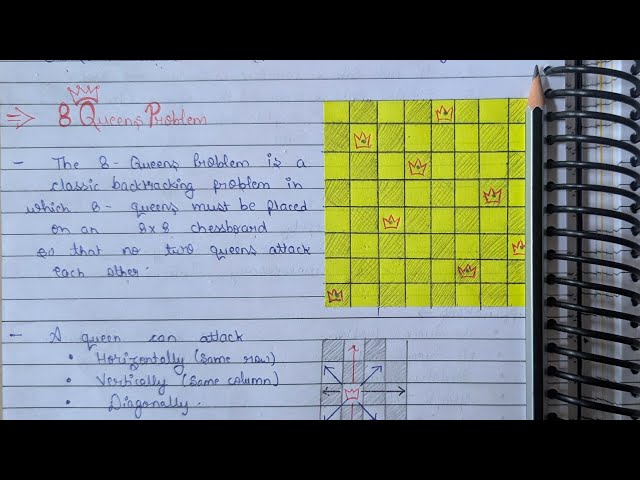 ⇒ 8 Queens Problem
- The 8-Queens Problem is a
classic backtracking problem in
which 8- queens must be placed
on an 8x8 chessboard
so that no two queens attack
each other.
- A queen can attack
• Horizontally (same row)
• Vertically (same column)
• Diagonally.